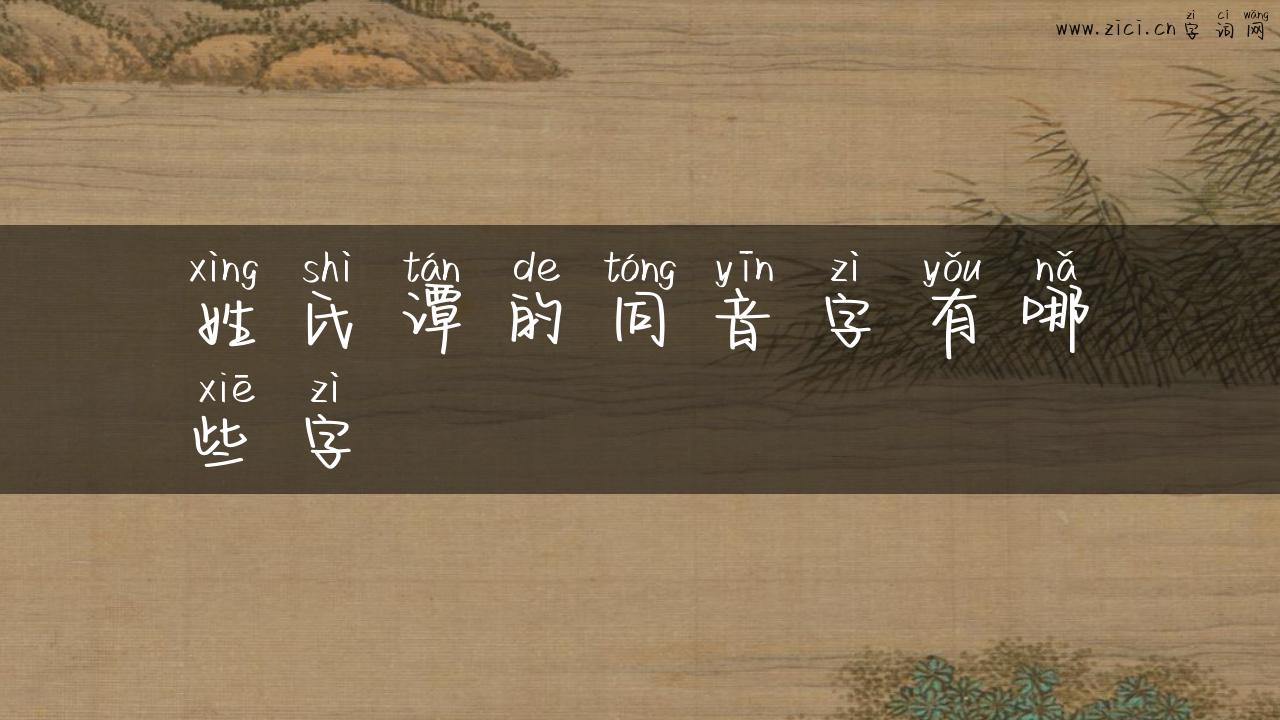 www.zici.cn 字词网
zì cí wǎng
xìng shì tán de tóng yīn zì yǒu nǎ
姓氏谭的同音字有哪
xiē zì
些字